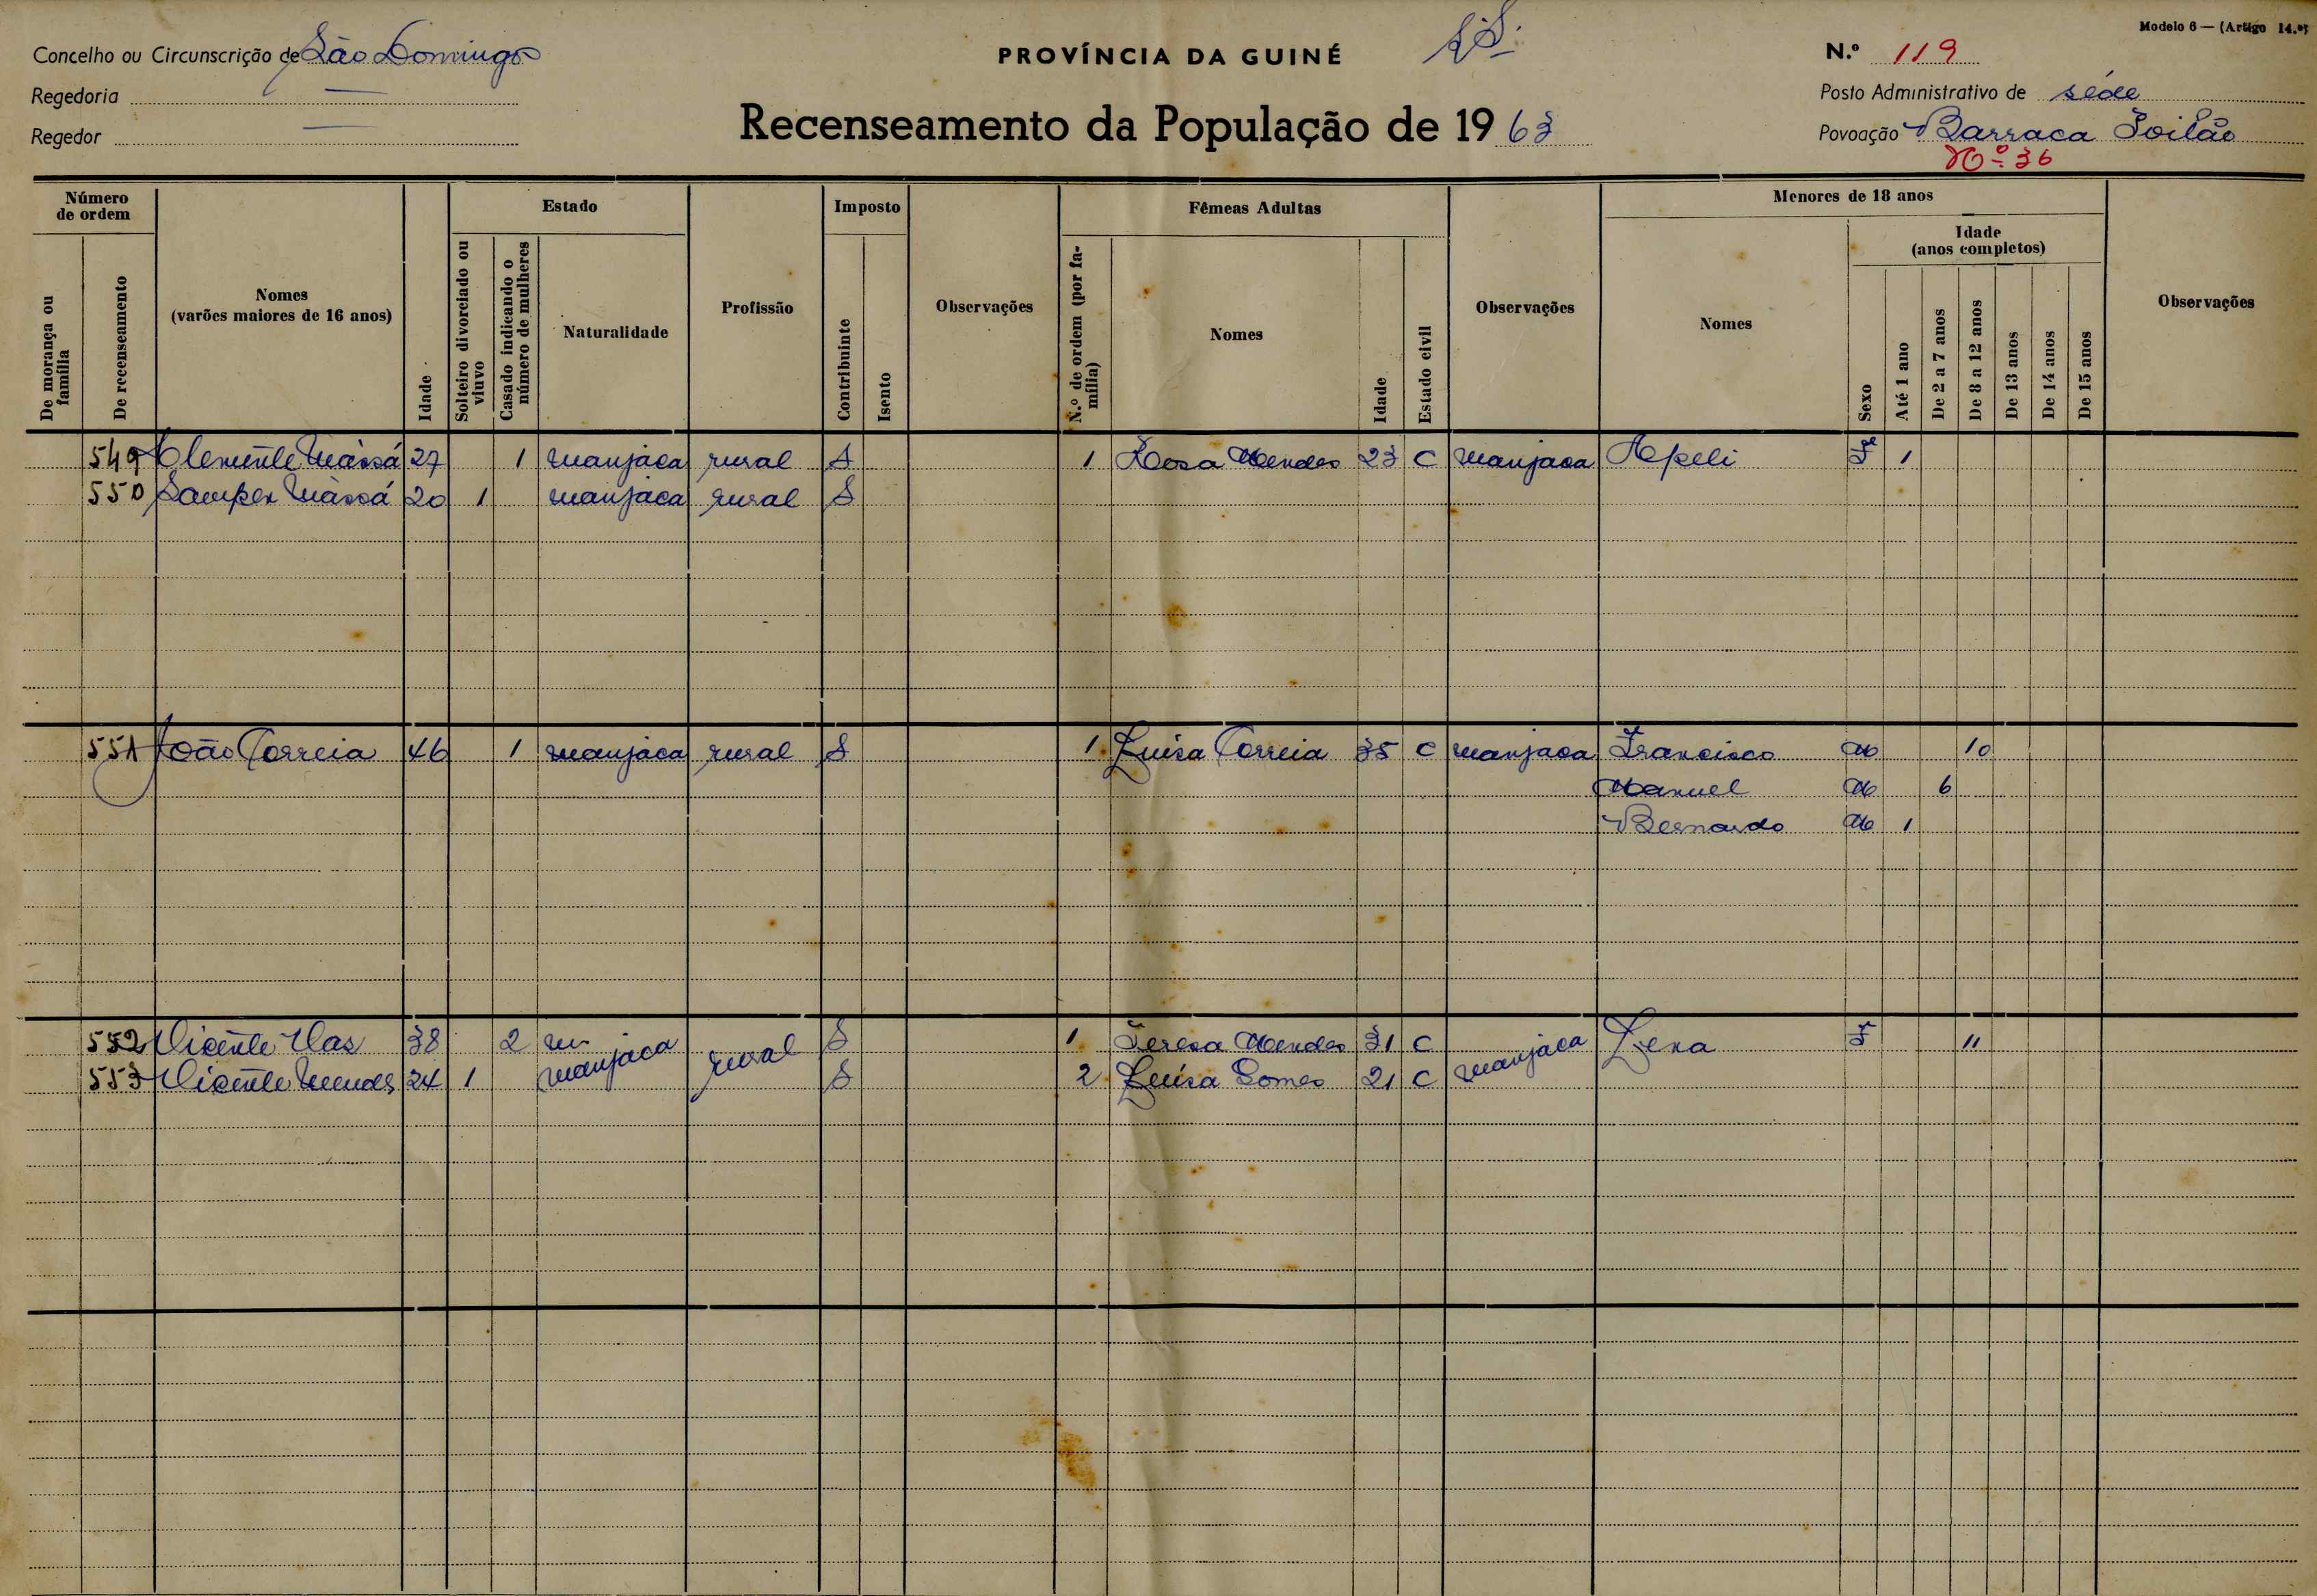 Modelo 6 — (Artigo 14.º)
Concelho ou Circunscrição de São Domingos
PROVÍNCIA DA GUINÉ
N.º 119
Regedoria —
Posto Administrativo de séde
Regedor —
Recenseamento da População de 1963
Povoação Barraca Poilão
Nº 36
Número de ordem
De morança ou família
De recenseamento
Nomes (varões maiores de 16 anos)
Idade
Estado
Solteiro divorciado ou viuvo
Casado indicando o número de mulheres
Naturalidade
Profissão
Imposto
Contribuinte
Isento
Observações
Fêmeas Adultas
N.º de ordem (por família)
Nomes
Idade
Estado civil
Observações
Menores de 18 anos
Nomes
Sexo
Idade (anos completos)
Até 1 ano
De 2 a 7 anos
De 8 a 12 anos
De 13 anos
De 14 anos
De 15 anos
Observações
549 Clemente 27 1 manjaca rural S 1 Rosa Mendes 23 C manjaca Apeli F 1
550 20 1 manjaca rural S
551 João Correia 46 1 manjaca rural S 1 Luisa Correia 35 C manjaca Francisco M 10
Manuel M 6
Bernardo M 1
552 Vicente Vas 38 2 manjaca rural S 1 Teresa Mendes 31 C manjaca Lena F 11
553 Vicente Mendes 24 1 S 2 Luisa Gomes 21 C